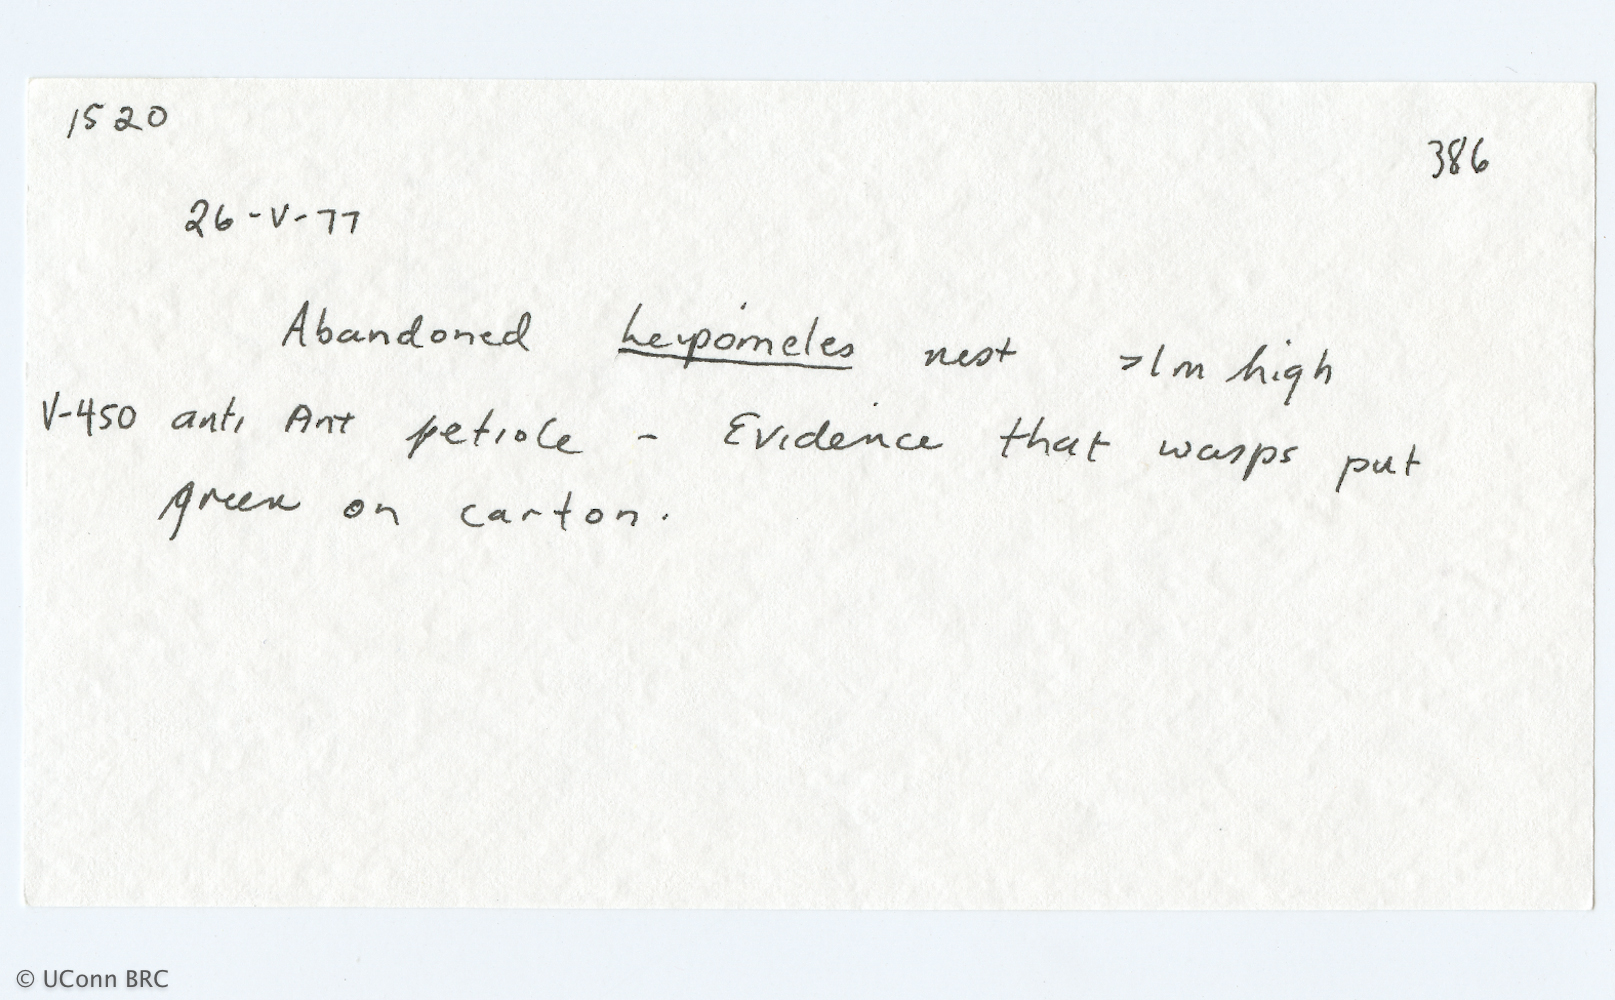 1520
386
26-V-77
Abandoned Leipomeles nest >1m high
V-450 anti Ant petiole - Evidence that wasps put
green on carton.
© UConn BRC